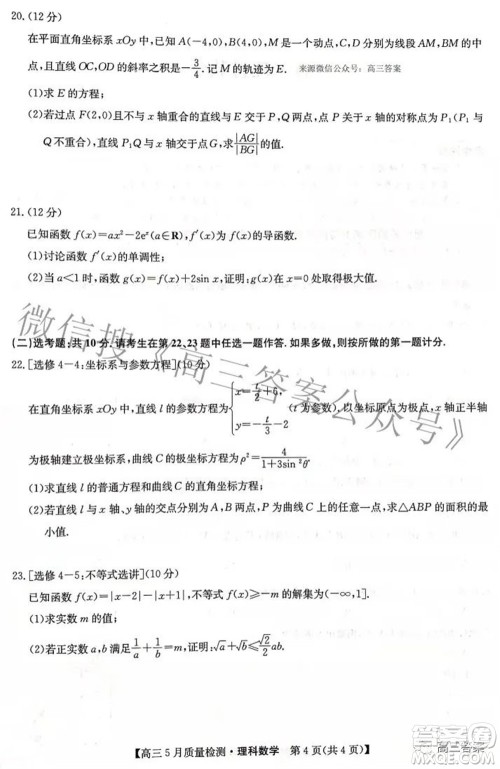 20.(12分)
在平面直角坐标系xOy中,已知A(-4,0),B(4,0),点C,D分别为线段AM,BM的中点,
直线OC,OD的斜率之积是-3/4.记M的轨迹为E.
来源微信公众号:高三答案
(1)求E的方程;
(2)若过点F(2,0)且不与x轴重合的直线与E交于P,Q两点,P关于x轴的对称点为P₁(P₁与
Q不重合),直线P₁Q与x轴交于点G,求|AG|/|BG|的值.
21.(12分)
已知函数f(x)=ax²-2eˣ(a∈R),f′(x)为f(x)的导函数.
(1)讨论函数f′(x)的单调性;
(2)当a<1时,函数g(x)=f(x)+2sin x,证明:g(x)在x=0处取得极大值.
(二)选考题:共10分.请考生在第22、23题中任选一题作答.如果多做,则按所做的第一题计分.
22.[选修4-4:坐标系与参数方程](10分)
在直角坐标系xOy中,直线l的参数方程为{x=t/2+6, y=-t/3-2 (t为参数),以坐标原点为极点,x轴正半轴
为极轴建立极坐标系,曲线C的极坐标方程为ρ²=4/(1+3sin²θ).
(1)求直线l的普通方程和曲线C的直角坐标方程;
(2)若直线l与x轴、y轴的交点分别为A、B两点,P为曲线C上的任意一点,求△ABP的面积的最
小值.
23.[选修4-5:不等式选讲](10分)
已知函数f(x)=|x-2|-|x+1|,不等式f(x)⩾-m的解集为(-∞,1].
(1)求实数m的值;
(2)若正实数a,b满足1/a+1/b=m,证明:√a+√b⩽√2/2ab.
【高三5月质量检测·理科数学 第4页(共4页)】
微信搜《高三答案公众号》
高三答案